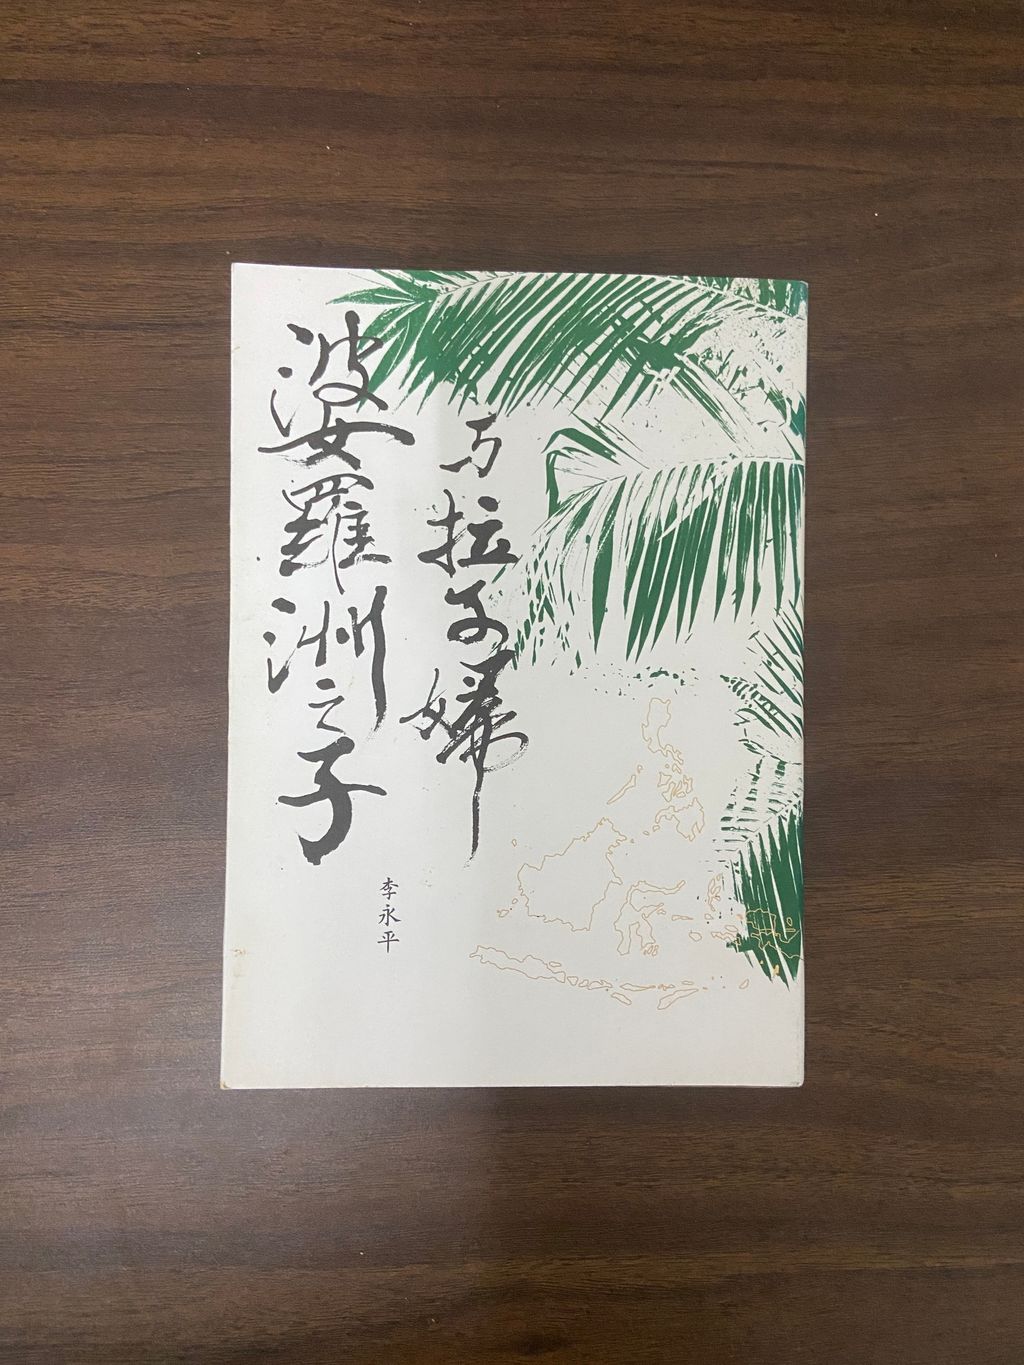 婆羅洲之子
与拉子婦
李永平